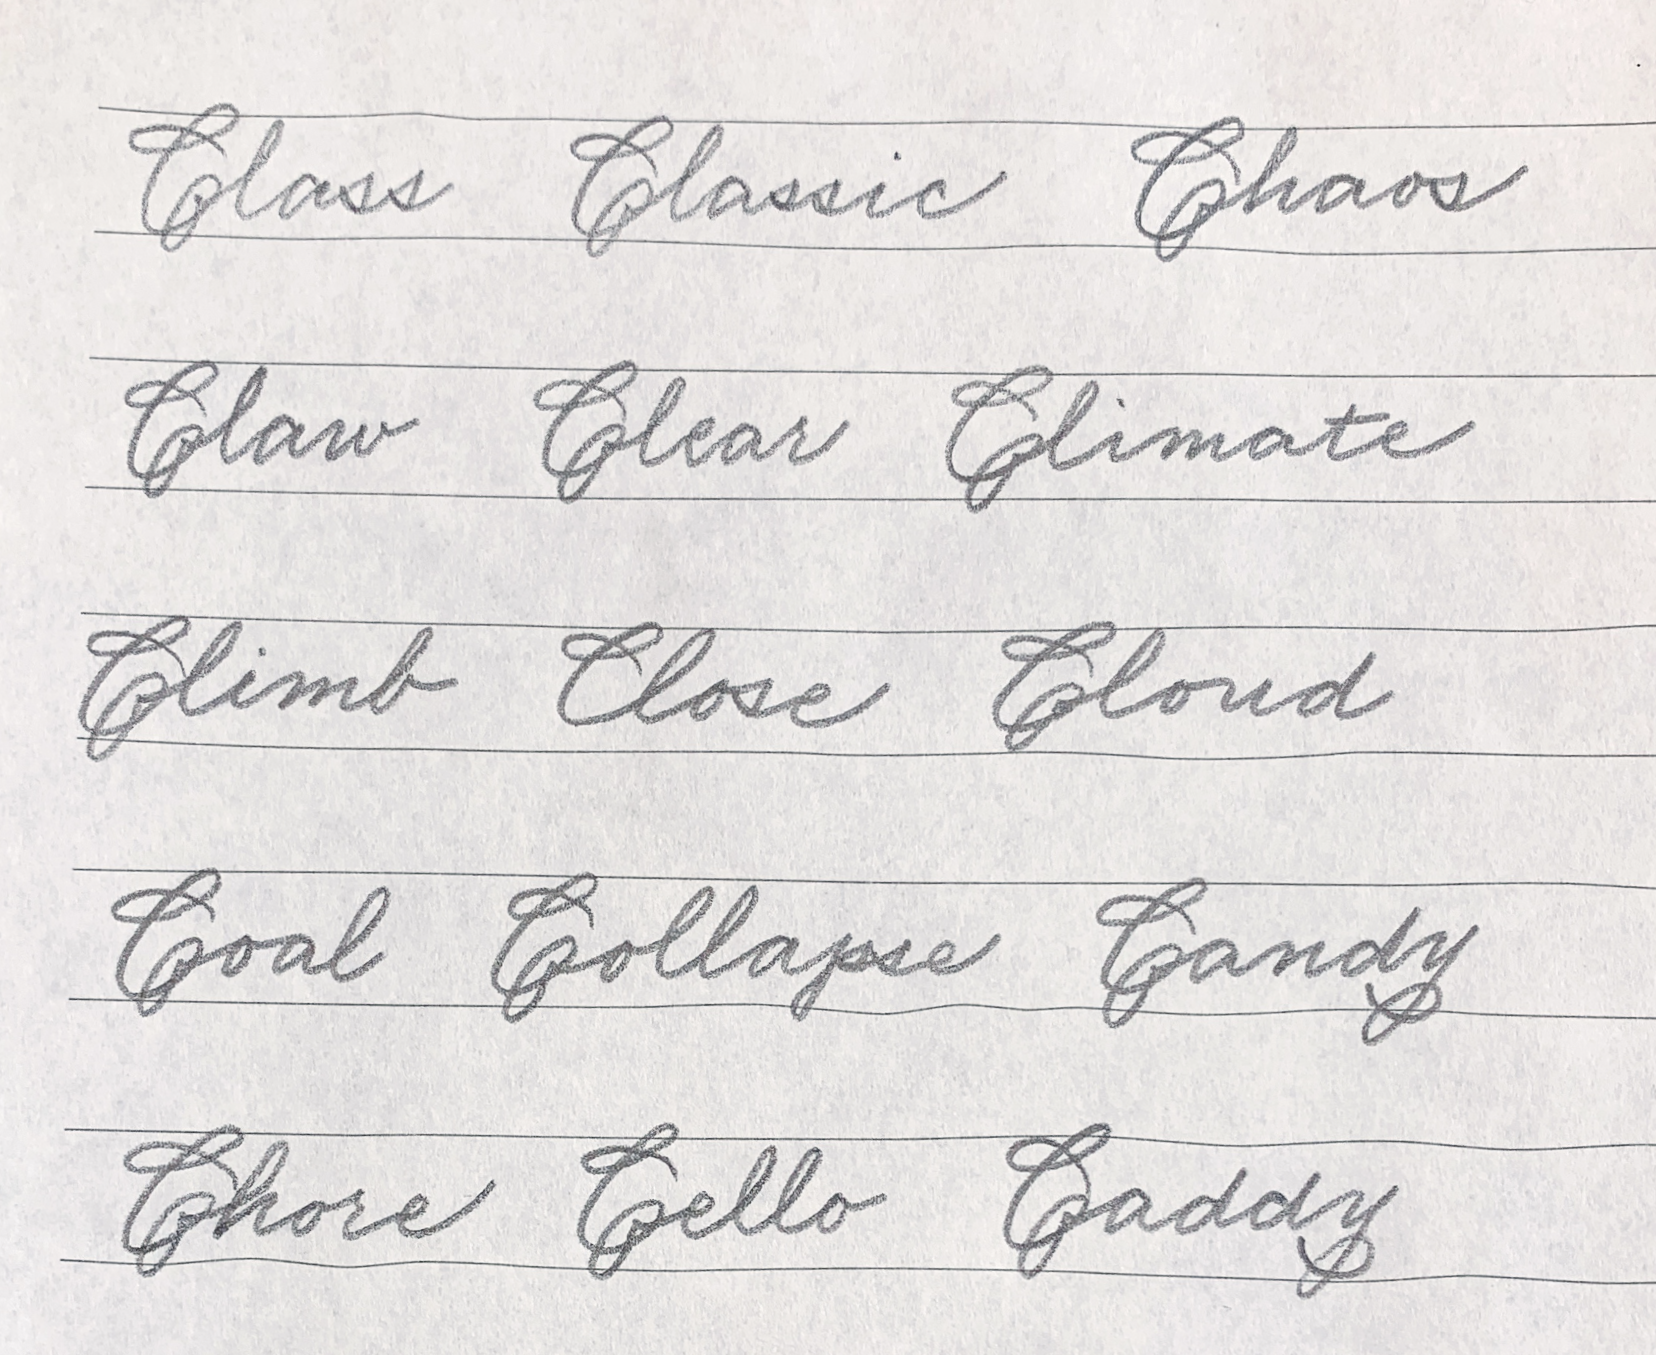 Class Classic Chaos
Claw Clear Climate
Climb Close Cloud
Coal Collapse Candy
Chore Cello Caddy